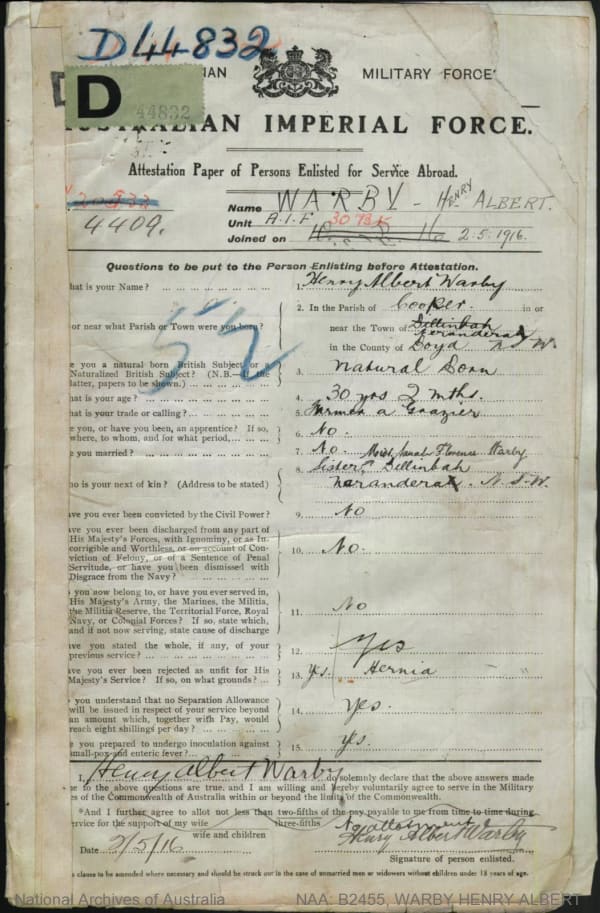 D44832
NIAN MILITARY FORCE
D
44832
USTRALIAN IMPERIAL FORCE.
Attestation Paper of Persons Enlisted for Service Abroad.
4409.
Name WARBY - HENRY ALBERT.
Unit A.I.F 30
Joined on 2.5.1916.
Questions to be put to the Person Enlisting before Attestation.
hat is your Name? 1. Henry Albert Warby
2. In the Parish of Cooper in or
or near what Parish or Town were you born? near the Town of
in the County of Boyd N S W
52
e you a natural born British Subject or a
Naturalized British Subject? (N.B.—If the
latter, papers to be shown.) 3. Natural Born
hat is your age? 4. 30 yrs 2 mths.
hat is your trade or calling? 5. Farmer & Grazier
e you, or have you been, an apprentice? If so,
where, to whom, and for what period 6. No.
e you married? 7. No.
8. Sister Florence Warby
ho is your next of kin? (Address to be stated) Narandera. N.S.W.
ave you ever been convicted by the Civil Power? 9. No
ave you ever been discharged from any part of
His Majesty's Forces, with Ignominy, or as In-
corrigible and Worthless, or on account of Con-
viction of Felony, or of a Sentence of Penal
Servitude, or have you been dismissed with
Disgrace from the Navy? 10. No.
you now belong to, or have you ever served in,
His Majesty's Army, the Marines, the Militia,
the Militia Reserve, the Territorial Force, Royal
Navy, or Colonial Forces? If so, state which,
and if not now serving, state cause of discharge 11. No
ave you stated the whole, if any, of your
previous service? 12. Yes
ave you ever been rejected as unfit for His
Majesty's Service? If so, on what grounds? 13. Yes. Hernia
you understand that no Separation Allowance
will be issued in respect of your service beyond
an amount which, together with Pay, would
reach eight shillings per day? 14. Yes.
re you prepared to undergo inoculation against
small-pox and enteric fever? 15. Yes.
I, Henry Albert Warby do solemnly declare that the above answers made
e to the above questions are true, and I am willing and hereby voluntarily agree to serve in the Military
es of the Commonwealth of Australia within or beyond the limits of the Commonwealth.
*And I further agree to allot not less than two-fifths of the pay payable to me from time to time during
ervice for the support of my wife three-fifths No allotment
wife and children Henry Albert Warby
Date 2/5/16 Signature of person enlisted.
s clause to be amended where necessary and should be struck out in the case of unmarried men or widowers without children under 18 years of age.
National Archives of Australia NAA: B2455, WARBY HENRY ALBERT